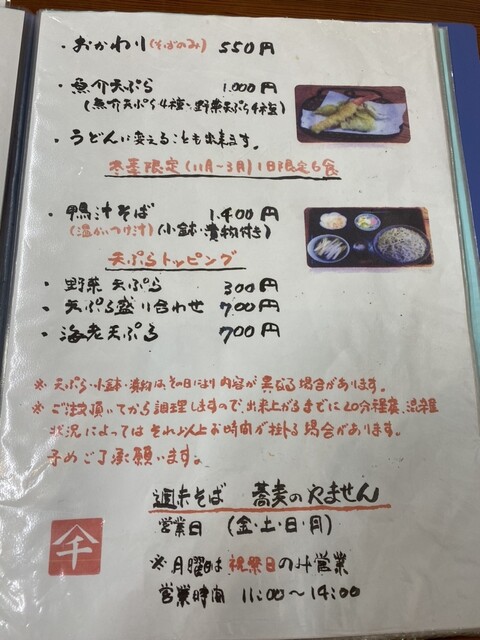 ・おかわり(そばのみ) 550円
・魚介天ぷら 1,000円
(魚介天ぷら4種・野菜天ぷら4種)
・うどんに変えることも出来ます。
冬季限定(11月〜3月)1日限定6食
・鴨汁そば 1,400円
(温かいつけ汁)(小鉢・漬物付き)
天ぷらトッピング
・野菜天ぷら 300円
・天ぷら盛り合わせ 700円
・海老天ぷら 700円
※天ぷら・小鉢・漬物は、その日により内容が異なる場合があります。
※ご注文頂いてから調理しますので、出来上がるまでに20分程度、混雑
状況によってはそれ以上お時間が掛る場合があります。
予めご了承願います。
週末そば 蕎麦のやません
営業日 (金・土・日・月)
※月曜日は祝祭日のみ営業
営業時間 11:00〜14:00
千